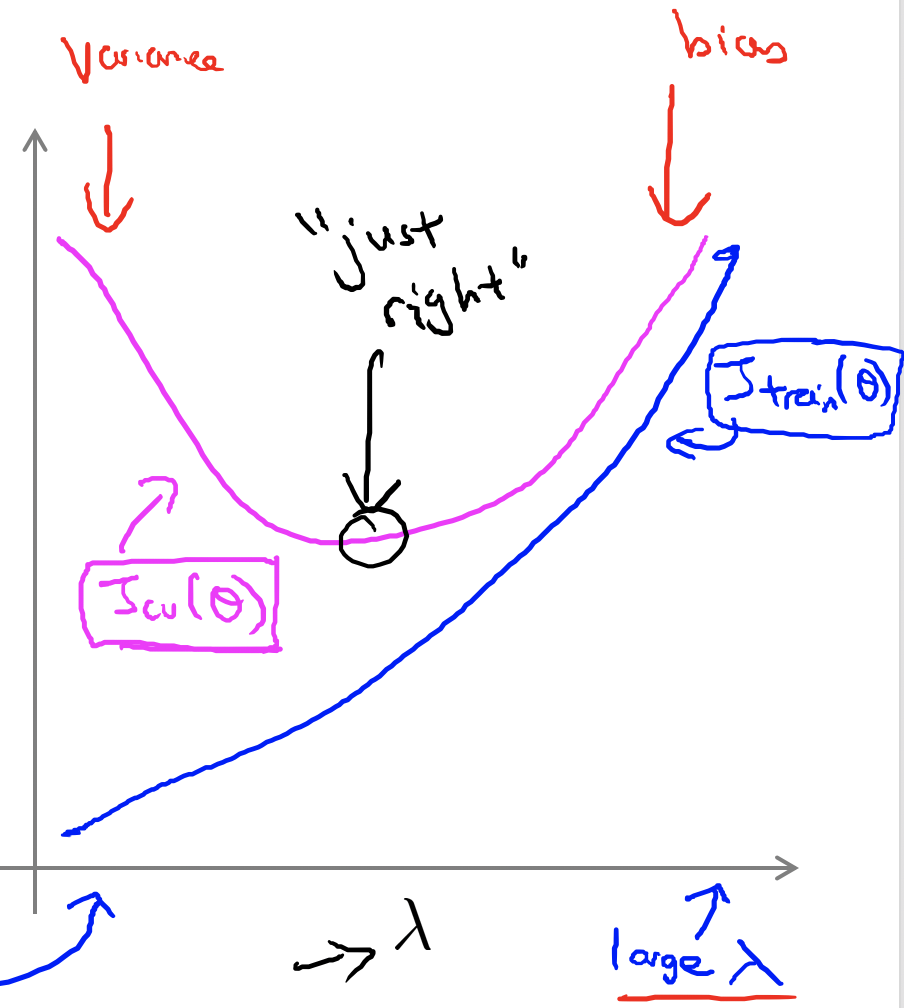 Variance
bias
"just
right"
J train (θ)
J cv (θ)
→ λ
large λ